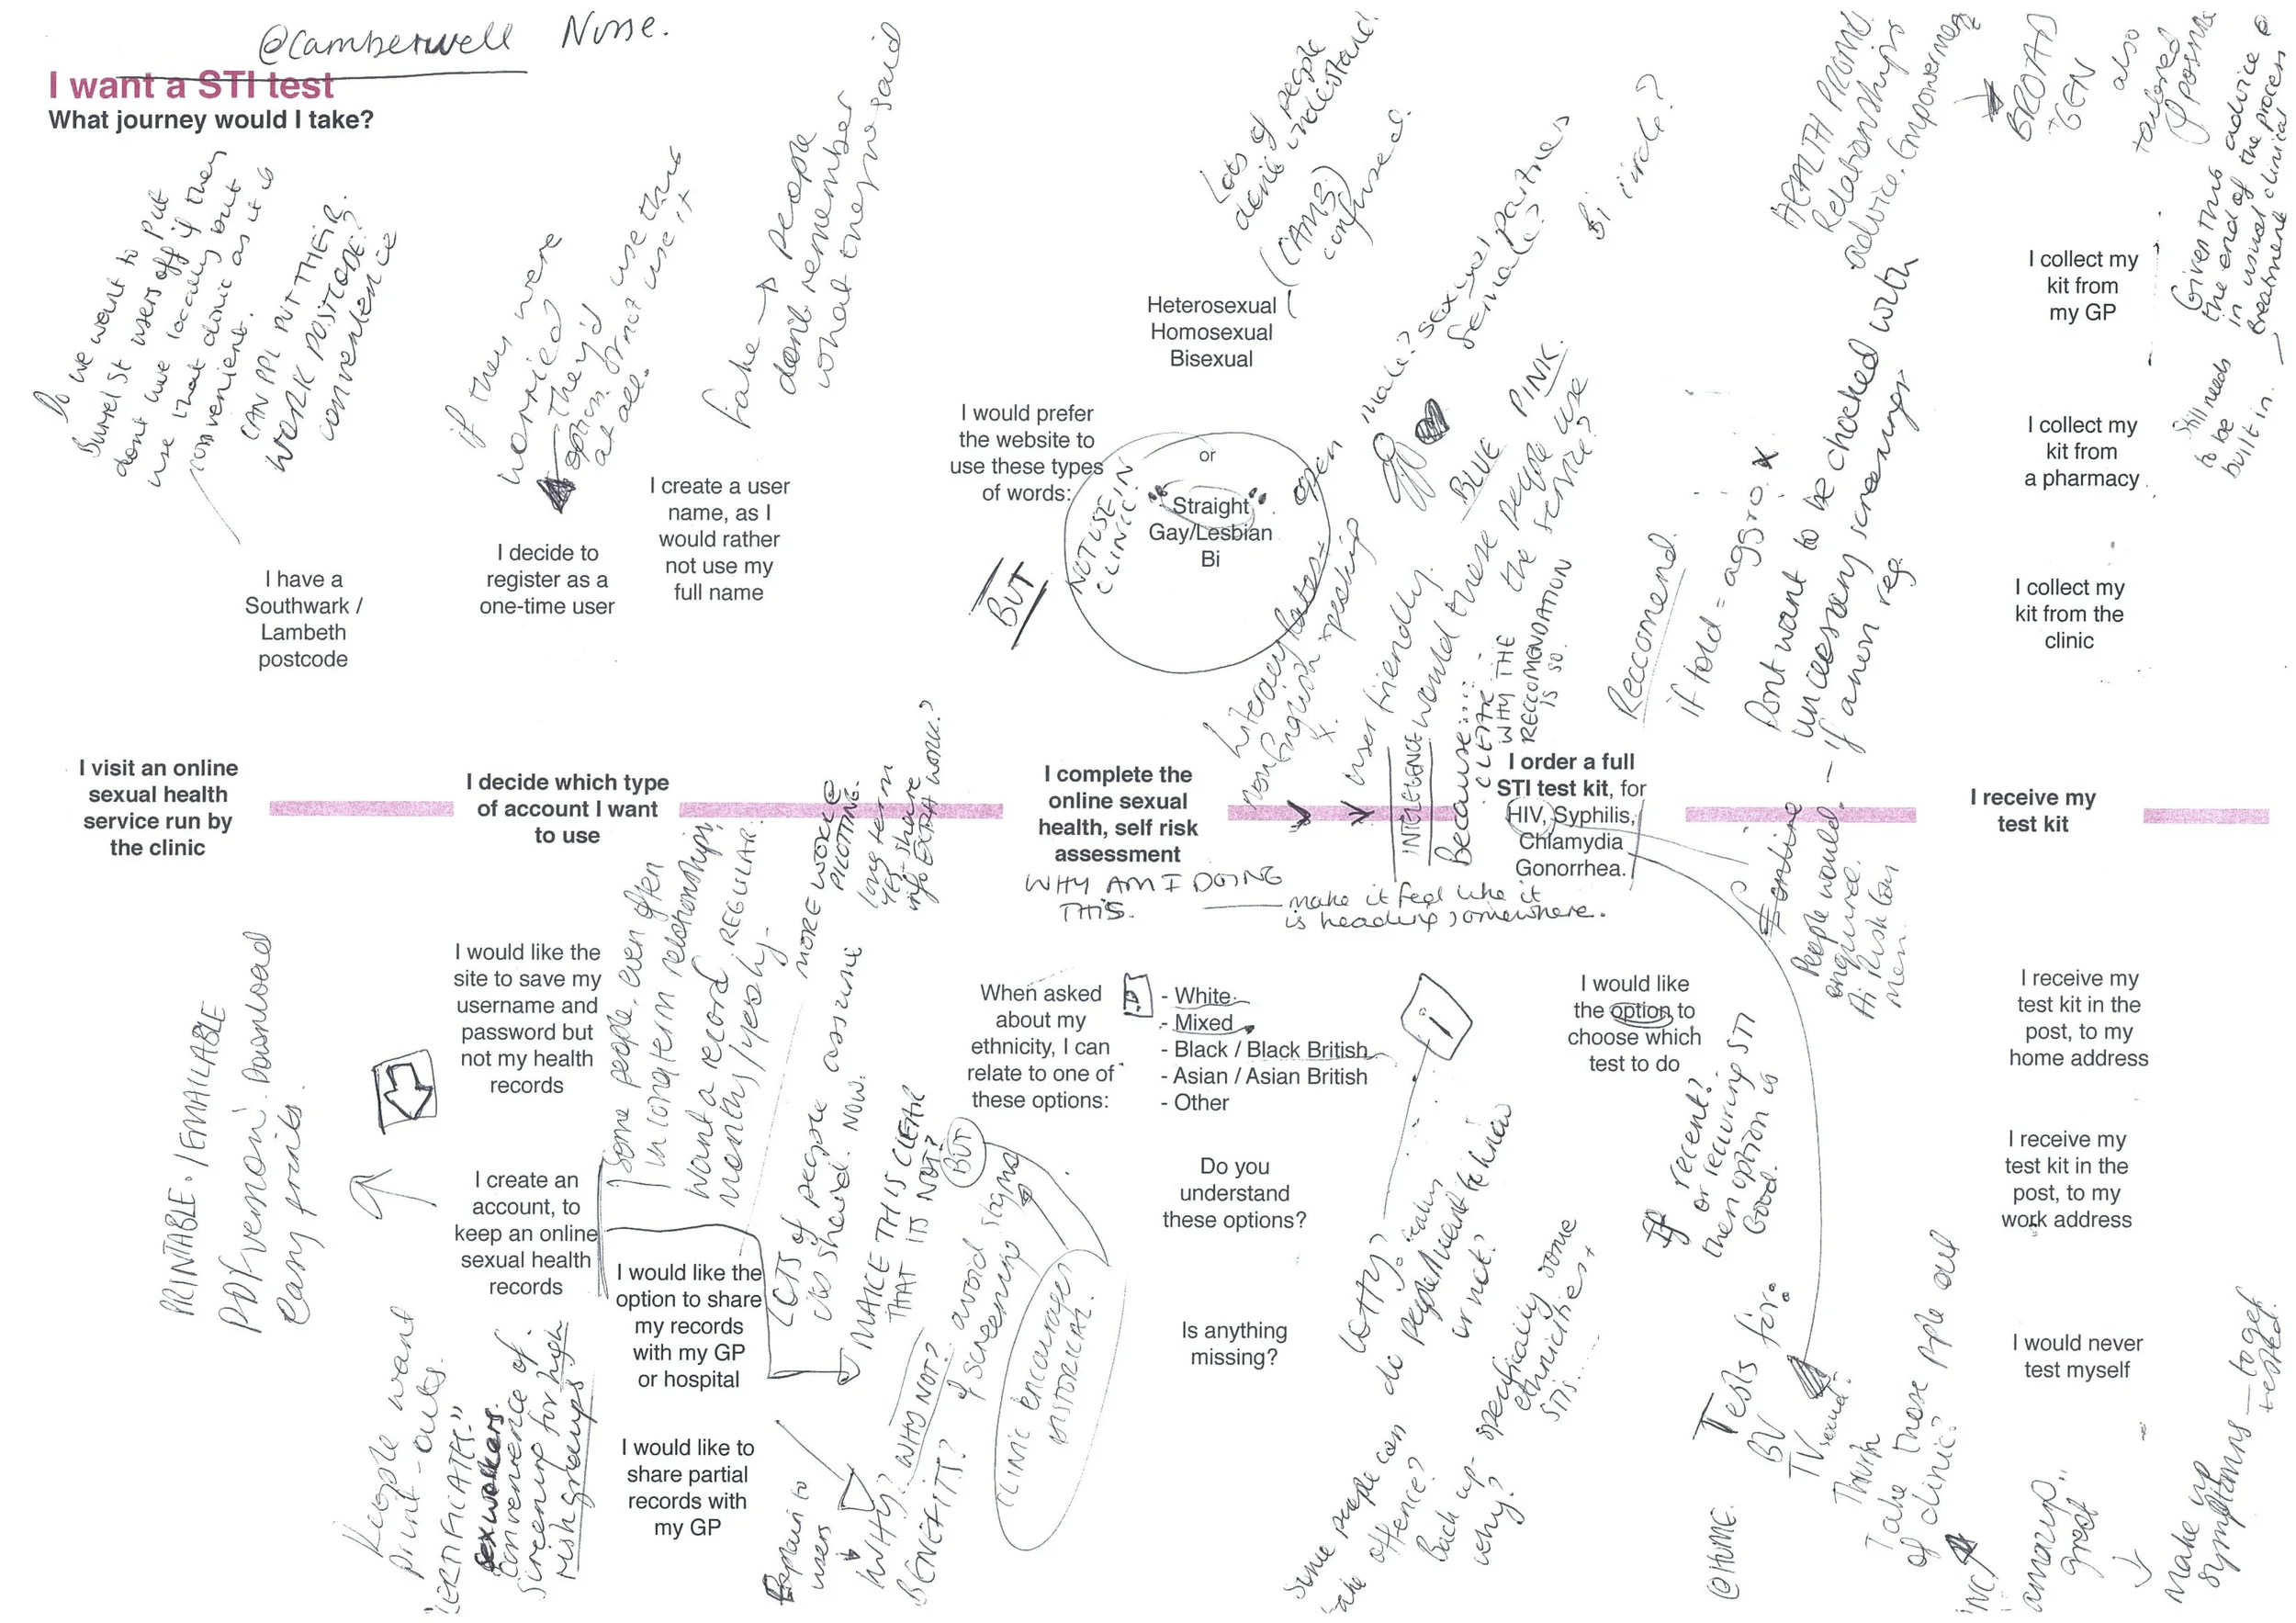 @Camberwell Nurse.
I want a STI test
What journey would I take?
Do we want to put
Burrel St users off if they
dont live locally but
use that clinic as it is
convenient.
CAN PPL PUT THEIR
WORK POSTCODE?
convenience
I have a
Southwark /
Lambeth
postcode
if they were
worried
they'd use this
option or not use it
at all.
I decide to
register as a
one-time user
fake → people
don't remember
what they said
I create a user
name, as I
would rather
not use my
full name
Lots of people
don't understand!
(CAMB.)
confused.
Heterosexual
Homosexual
Bisexual
I would prefer
the website to
use these types
of words:
or
"Straight"
Gay/Lesbian
Bi
NOT USE IN
CLINIC.
BUT
open
male? sexual partners
female?
Bi circle?
BLUE PINK.
Literacy rates =
non English speaking
user friendly.
INTELEGENCE would these people use
the service?
Because....
CLEAR WHY THE
RECCOMENDATION
IS SO.
Reccomend.
if told = aggro. x
Dont want to be chocked with
uncessary screenings
if anon reg.
HEALTH PROMO.
Relationships
advice. Empowerment
BROAD
+ GEN
also
tailored
if possible
Given this advice @
the end of the process
in usual clinical
treatment
Still needs
to be
built in.
I collect my
kit from
my GP
I collect my
kit from
a pharmacy
I collect my
kit from the
clinic
I visit an online
sexual health
service run by
the clinic
I decide which type
of account I want
to use
I complete the
online sexual
health, self risk
assessment
WHY AM I DOING
THIS.
make it feel like it
is heading somewhere.
I order a full
STI test kit, for
HIV, Syphilis,
Chlamydia
Gonorrhea.
I receive my
test kit
online
People would
enquired.
men.
PRINTABLE. / EMAILABLE
PDF version. Download
Easy prints.
I would like the
site to save my
username and
password but
not my health
records
I create an
account, to
keep an online
sexual health
records
Some people, even often
in long term relationships,
want a record REGULAR.
monthly / yearly -
MORE WORK
PILOTING.
long term
yes - share
info EXTRA WORK?
LOTS of people assume
its shared. NOW.
MAKE THIS CLEAR
THAT ITS NOT?
I would like the
option to share
my records
with my GP
or hospital
I would like to
share partial
records with
my GP
People want
print-outs.
"CERTIFICATE."
sexworkers.
convenience of
screening for high
risk groups
Explain to
users
WHY? WHY NOT?
BENEFITS?
BUT
avoid stigma
of screening
CLINIC encourages
HISTORICAL.
When asked
about my
ethnicity, I can
relate to one of
these options:
- White
- Mixed
- Black / Black British
- Asian / Asian British
- Other
i
Do you
understand
these options?
Is anything
missing?
WHY?
do people really want to know
or not?
Some people can
take offence?
Back up -
why?
specifically some
ethnicities +
STIs....
I would like
the option to
choose which
test to do
If recent?
or recurring STI
then option is
Good.
Tests for:
BV
TV
Thrush
Take those ppl out
of clinic?
@HOME.
I receive my
test kit in the
post, to my
home address
I receive my
test kit in the
post, to my
work address
I would never
test myself
great
Make up
symptoms — to get
tested.